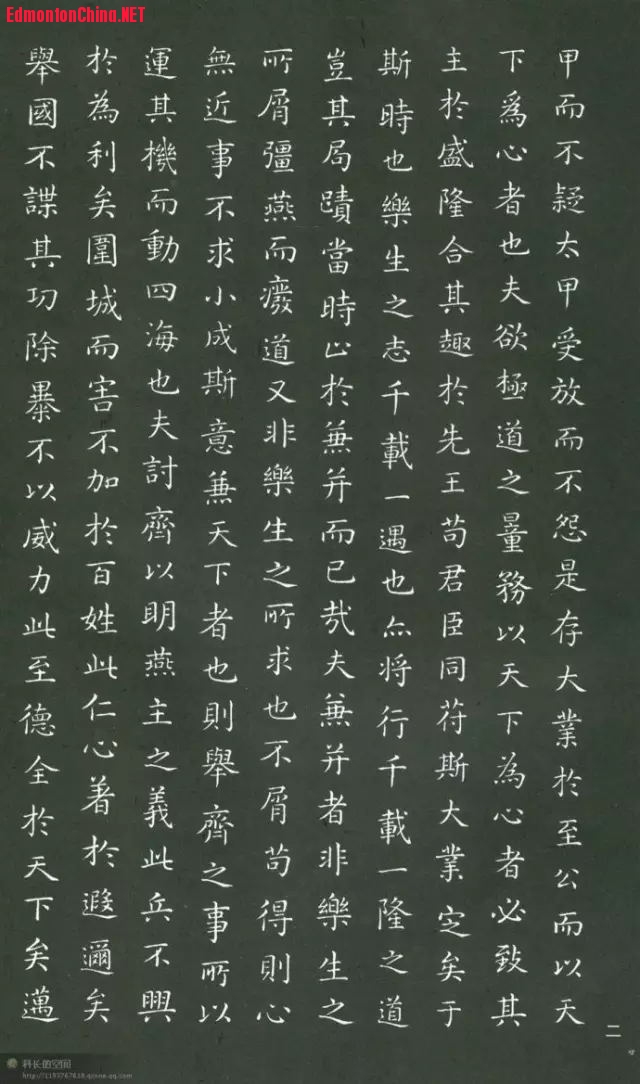 EdmontonChina.NET
甲而不疑太甲受放而不怨是存大業於至公而以天
下爲心者也夫欲極道之量務以天下為心者必致其
主於盛隆合其趣於先王苟君臣同苻斯大業定矣于
斯時也樂生之志千載一遇也亦將行千載一隆之道
豈其局蹟當時止於兼并而已哉夫兼并者非樂生之
所屑彊燕而癈道又非樂生之所求也不屑苟得則心
無近事不求小成斯意兼天下者也則舉齊之事所以
運其機而動四海也夫討齊以明燕主之義此兵不興
於為利矣圍城而害不加於百姓此仁心著於遐邇矣
舉國不謀其功除暴不以威力此至德全於天下矣邁
二
科长的空间
http://1193767618.qzone.qq.com